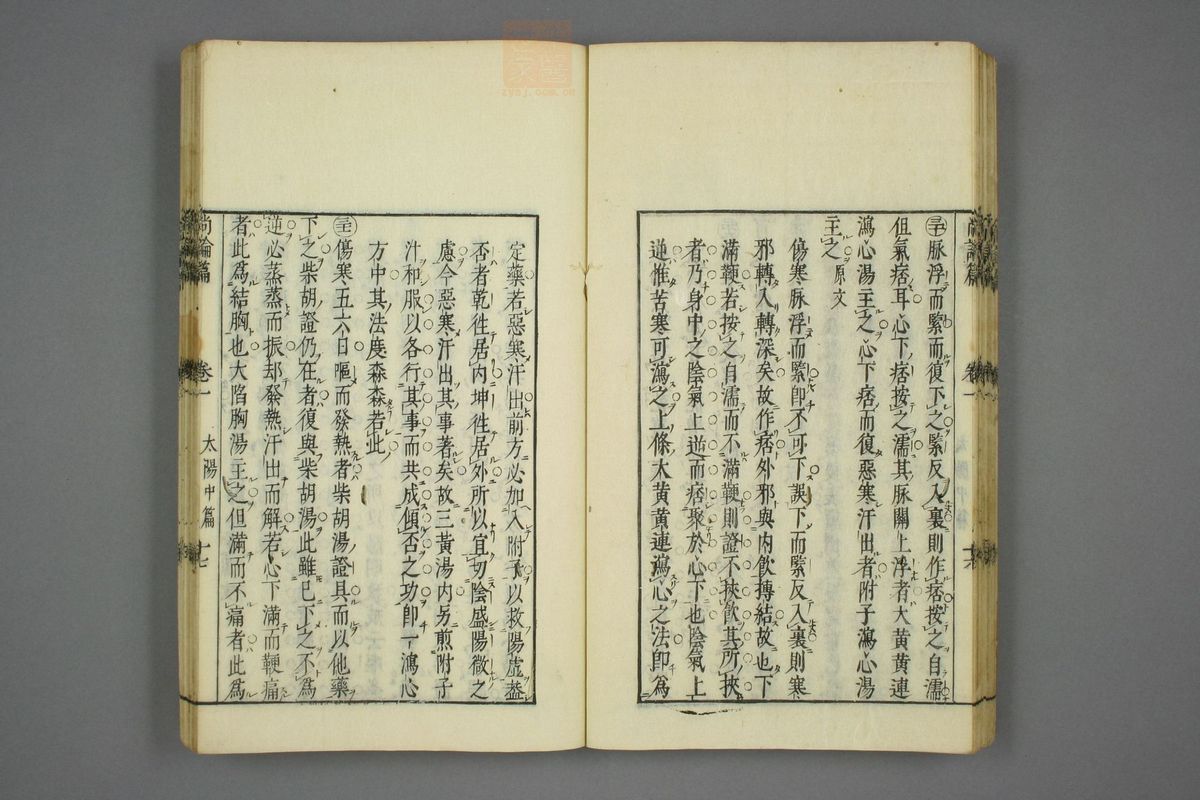 脉浮而緊而復下之緊反入裏則作痞按之自濡
但氣痞耳心下痞按之濡其脉關上浮者大黄黄連
瀉心湯主之心下痞而復惡寒汗出者附子瀉心湯
主之原文
傷寒脉浮而緊卽不可下誤下而緊反入裏則寒
邪轉入轉深矣故作痞外邪與内飲摶結故心下
滿鞕若按之自濡而不滿鞕則證不挾飲其所挾
者乃身中之陰氣上逆而痞聚於心下也陰氣上
逆惟苦寒可瀉之上條大黄黄連瀉心之法卽爲
定藥若惡寒汗出前方必加入附子以救陽虚葢
否者乾徃居内坤徃居外所以宜切陰盛陽微之
慮今惡寒汗出其事著矣故三黄湯内另煎附子
汁和服以各行其事而共成傾否之功卽一瀉心
方中其法度森森若此
傷寒五六日嘔而發熱者柴胡湯證具而以他藥
下之柴胡證仍在者復與柴胡湯此雖已下之不爲
逆必蒸蒸而振却發熱汗出而解若心下滿而鞕痛
者此爲結胸也大陷胸湯主之但滿而不痛者此爲
尚論篇
卷一
太陽中篇
十七
zysj.com.cn